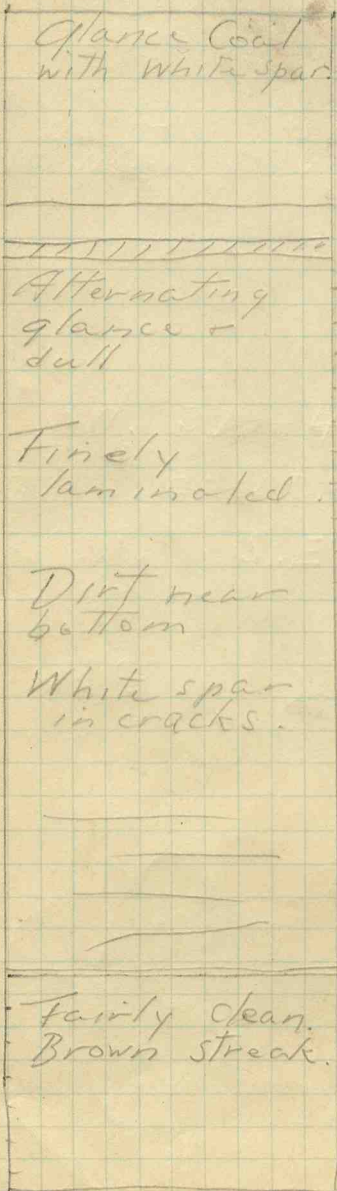 Glance Coal
with white spar.
Alternating
glance &
dull
Finely
laminated.
Dirt near
bottom
White spar
in cracks.
Fairly clean.
Brown streak.